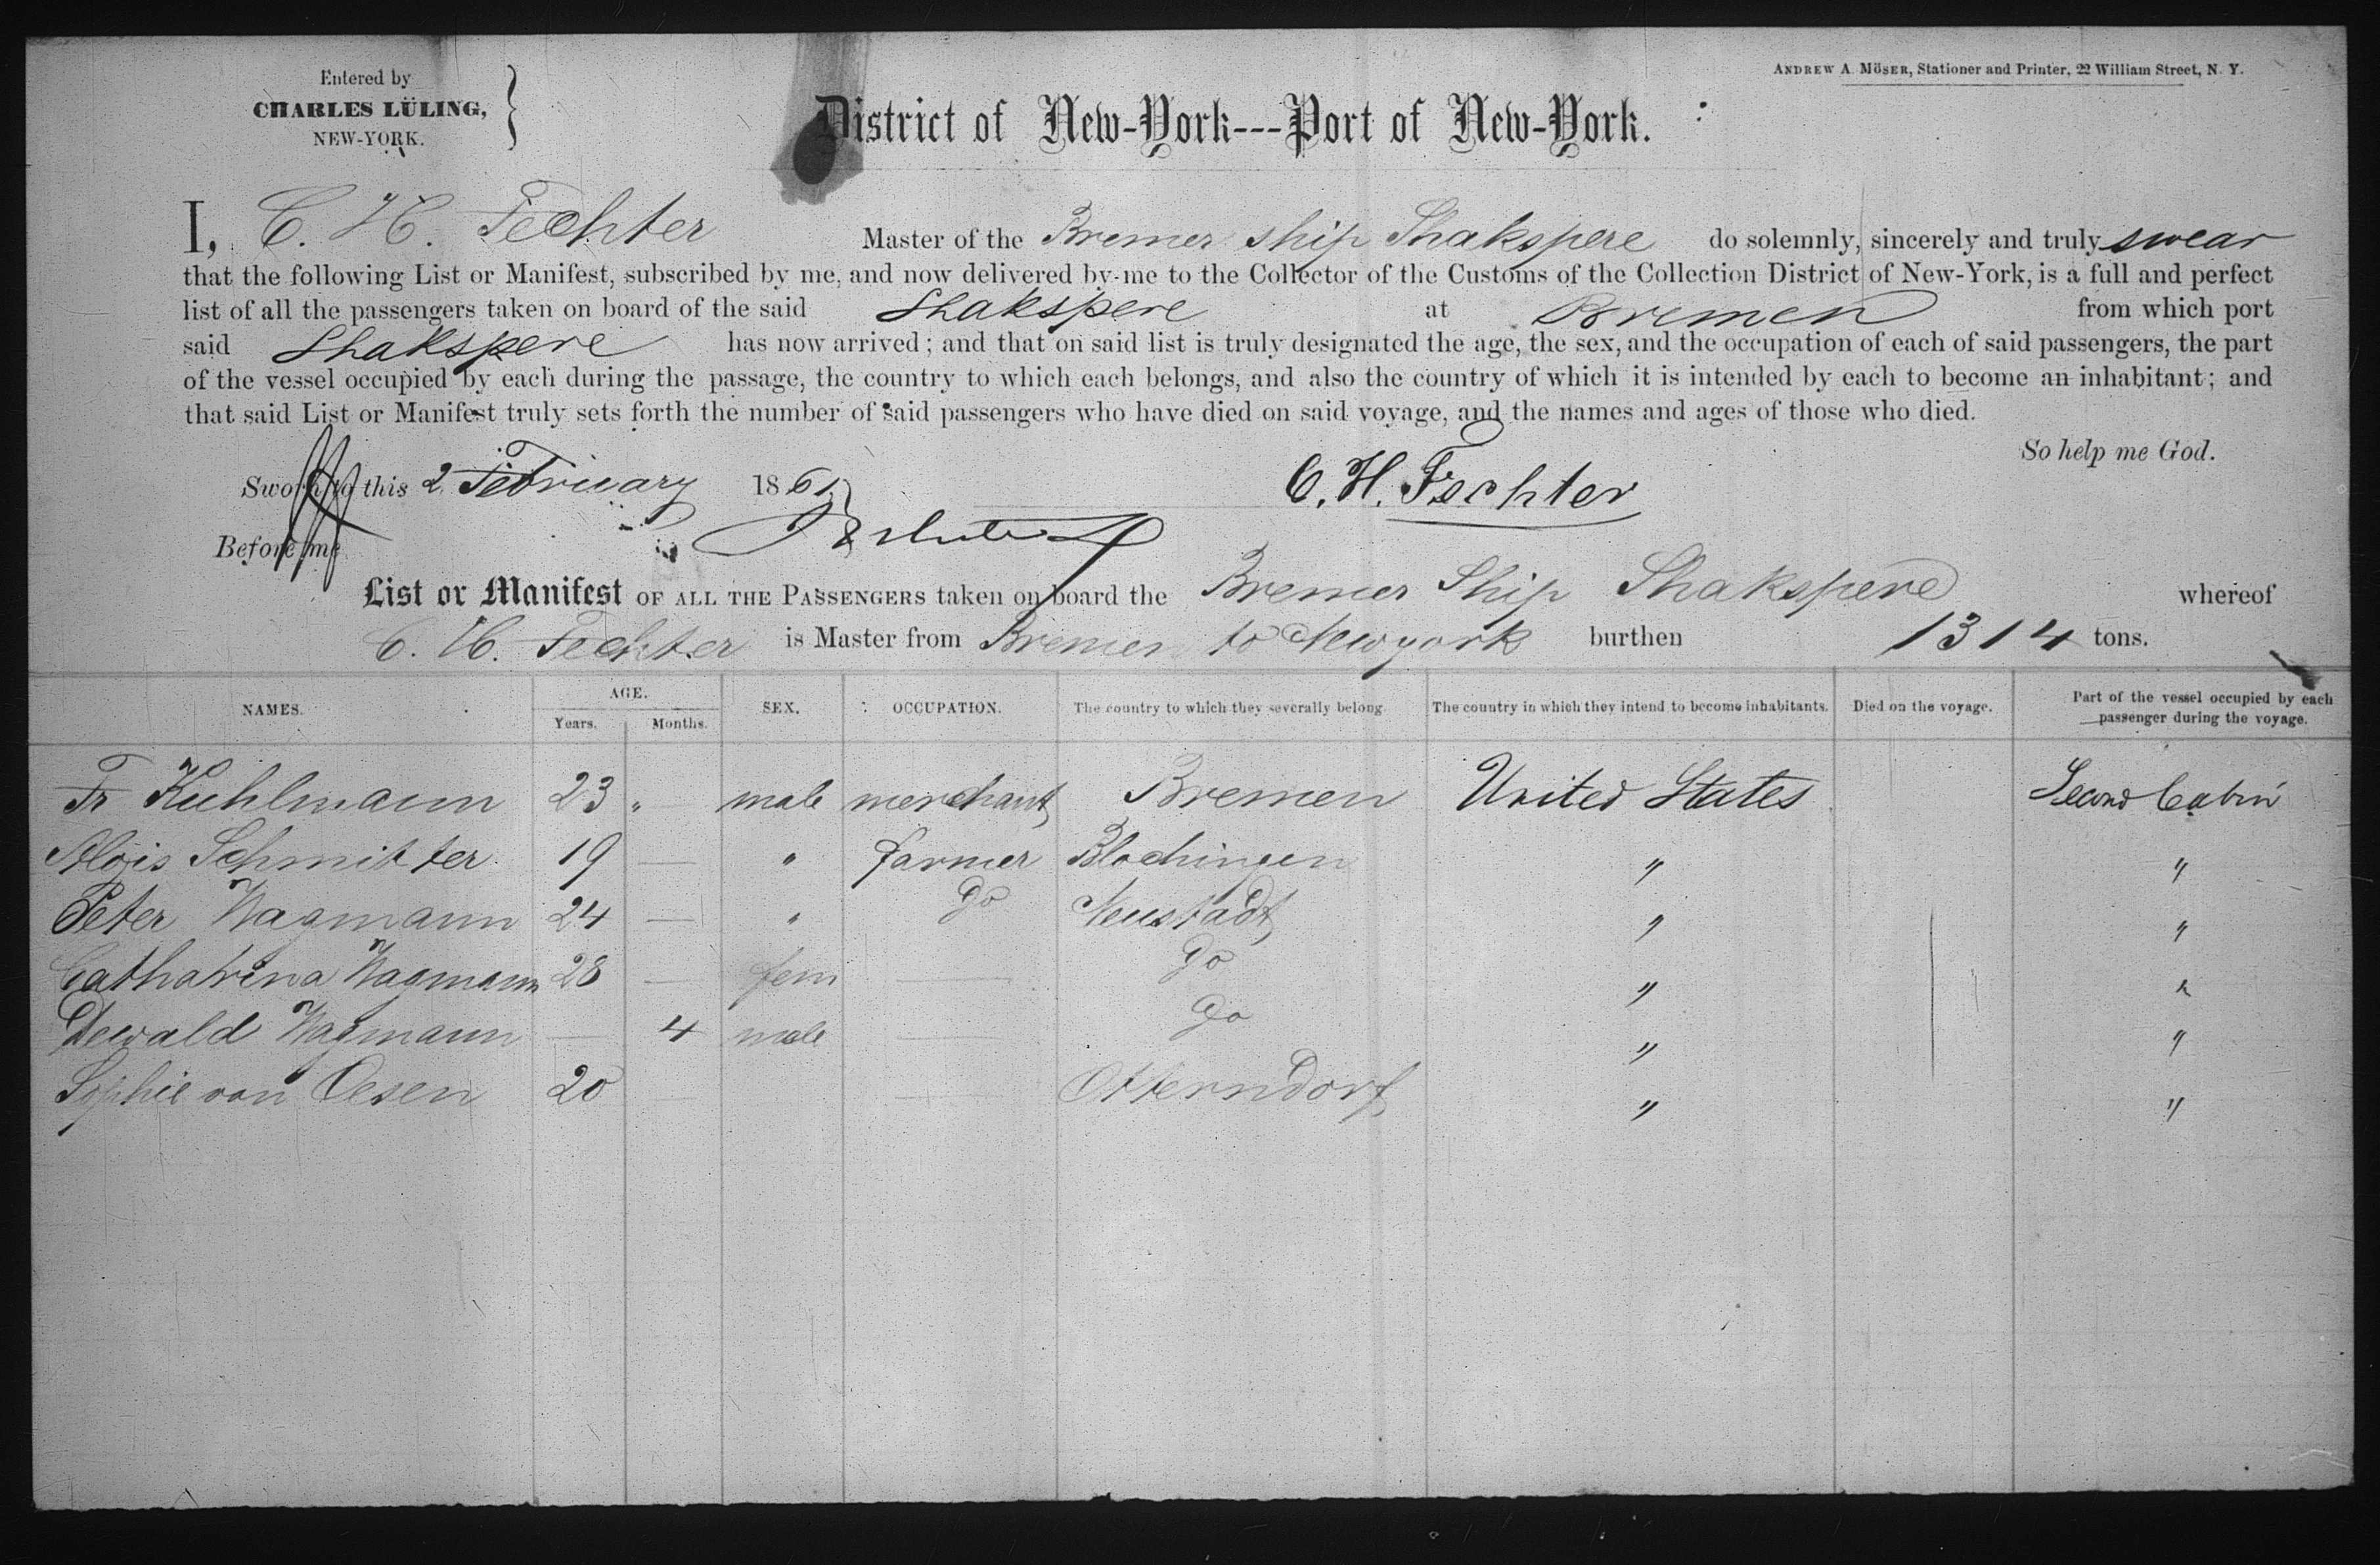 Entered by
CHARLES LÜLING,
NEW-YORK.
ANDREW A. MÖSER, Stationer and Printer, 22 William Street, N. Y.
District of New-York---Port of New-York.
I, C. H. Fechter Master of the Bremer ship Shakspere do solemnly, sincerely and truly swear
that the following List or Manifest, subscribed by me, and now delivered by me to the Collector of the Customs of the Collection District of New-York, is a full and perfect
list of all the passengers taken on board of the said Shakspere at Bremen from which port
said Shakspere has now arrived; and that on said list is truly designated the age, the sex, and the occupation of each of said passengers, the part
of the vessel occupied by each during the passage, the country to which each belongs, and also the country of which it is intended by each to become an inhabitant; and
that said List or Manifest truly sets forth the number of said passengers who have died on said voyage, and the names and ages of those who died.
So help me God.
Sworn to this 2 February 1861 C. H. Fechter
Before me
List or Manifest OF ALL THE PASSENGERS taken on board the Bremer Ship Shakspere whereof
C. H. Fechter is Master from Bremen to Newyork burthen 1314 tons.
NAMES. AGE. Years. Months. SEX. OCCUPATION. The country to which they severally belong. The country in which they intend to become inhabitants. Died on the voyage. Part of the vessel occupied by each passenger during the voyage.
Fr Kuhlmann 23 " male merchant Bremen United States Second Cabin
Alois Schmitter 19 — " farmer Blochingen " "
Peter Wagmann 24 — " do Neustadt " "
Catharina Wagmann 28 — fem — do " "
Dewald Wagmann — 4 male — do " "
Sophie von Oesen 20 — Otterndorf " "